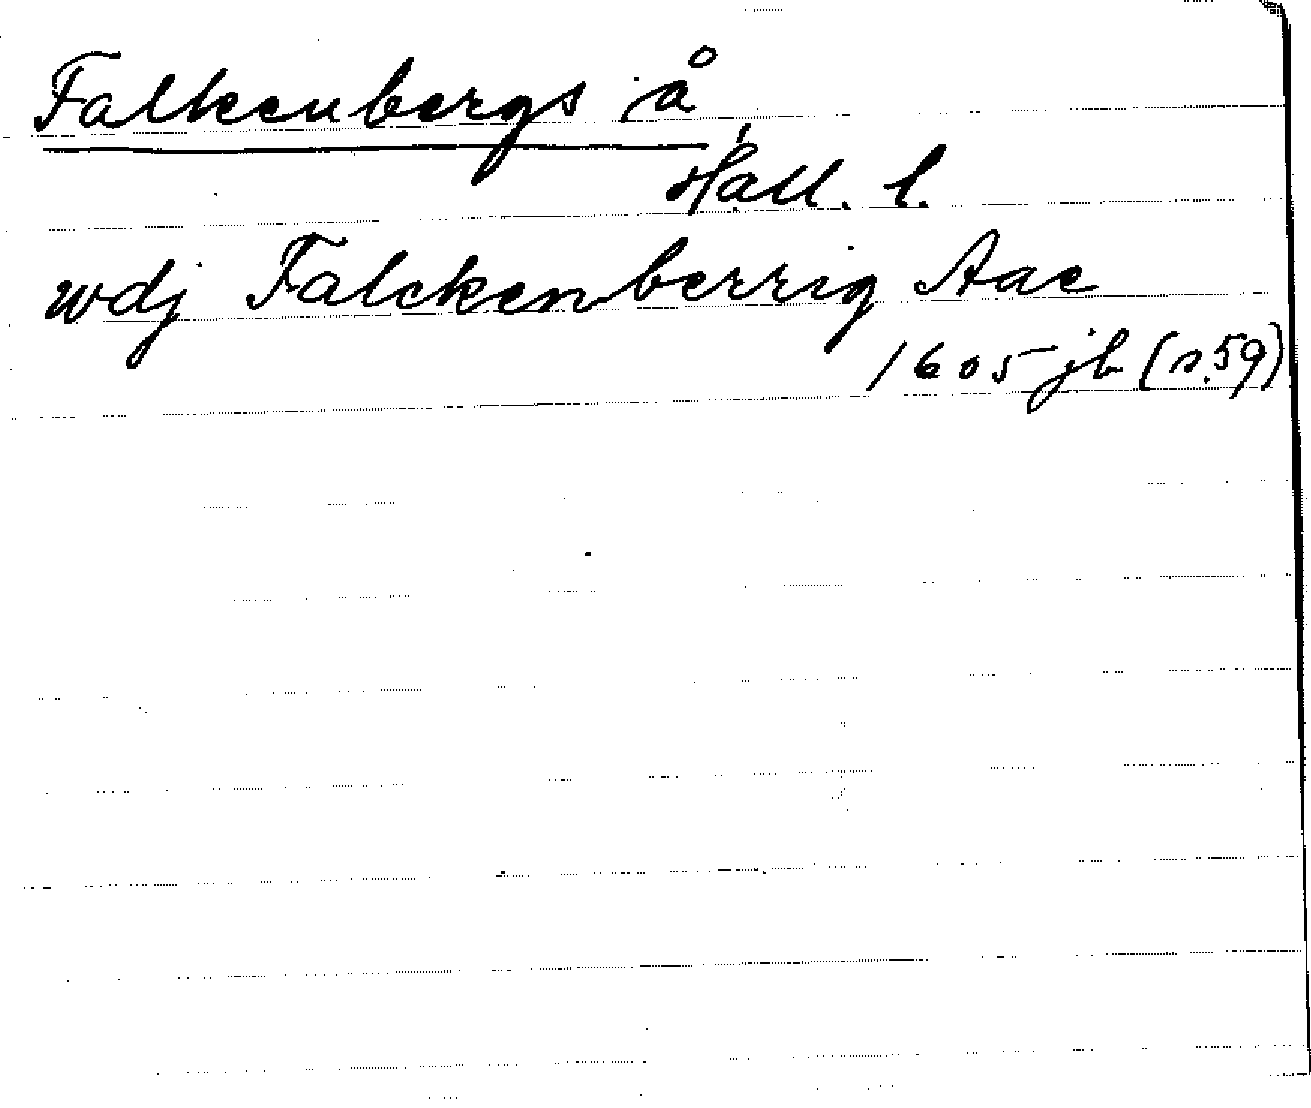 Falkenbergs å,
Hall. l.
wdj Falckenberrig Aae
1605 jb (s.59)